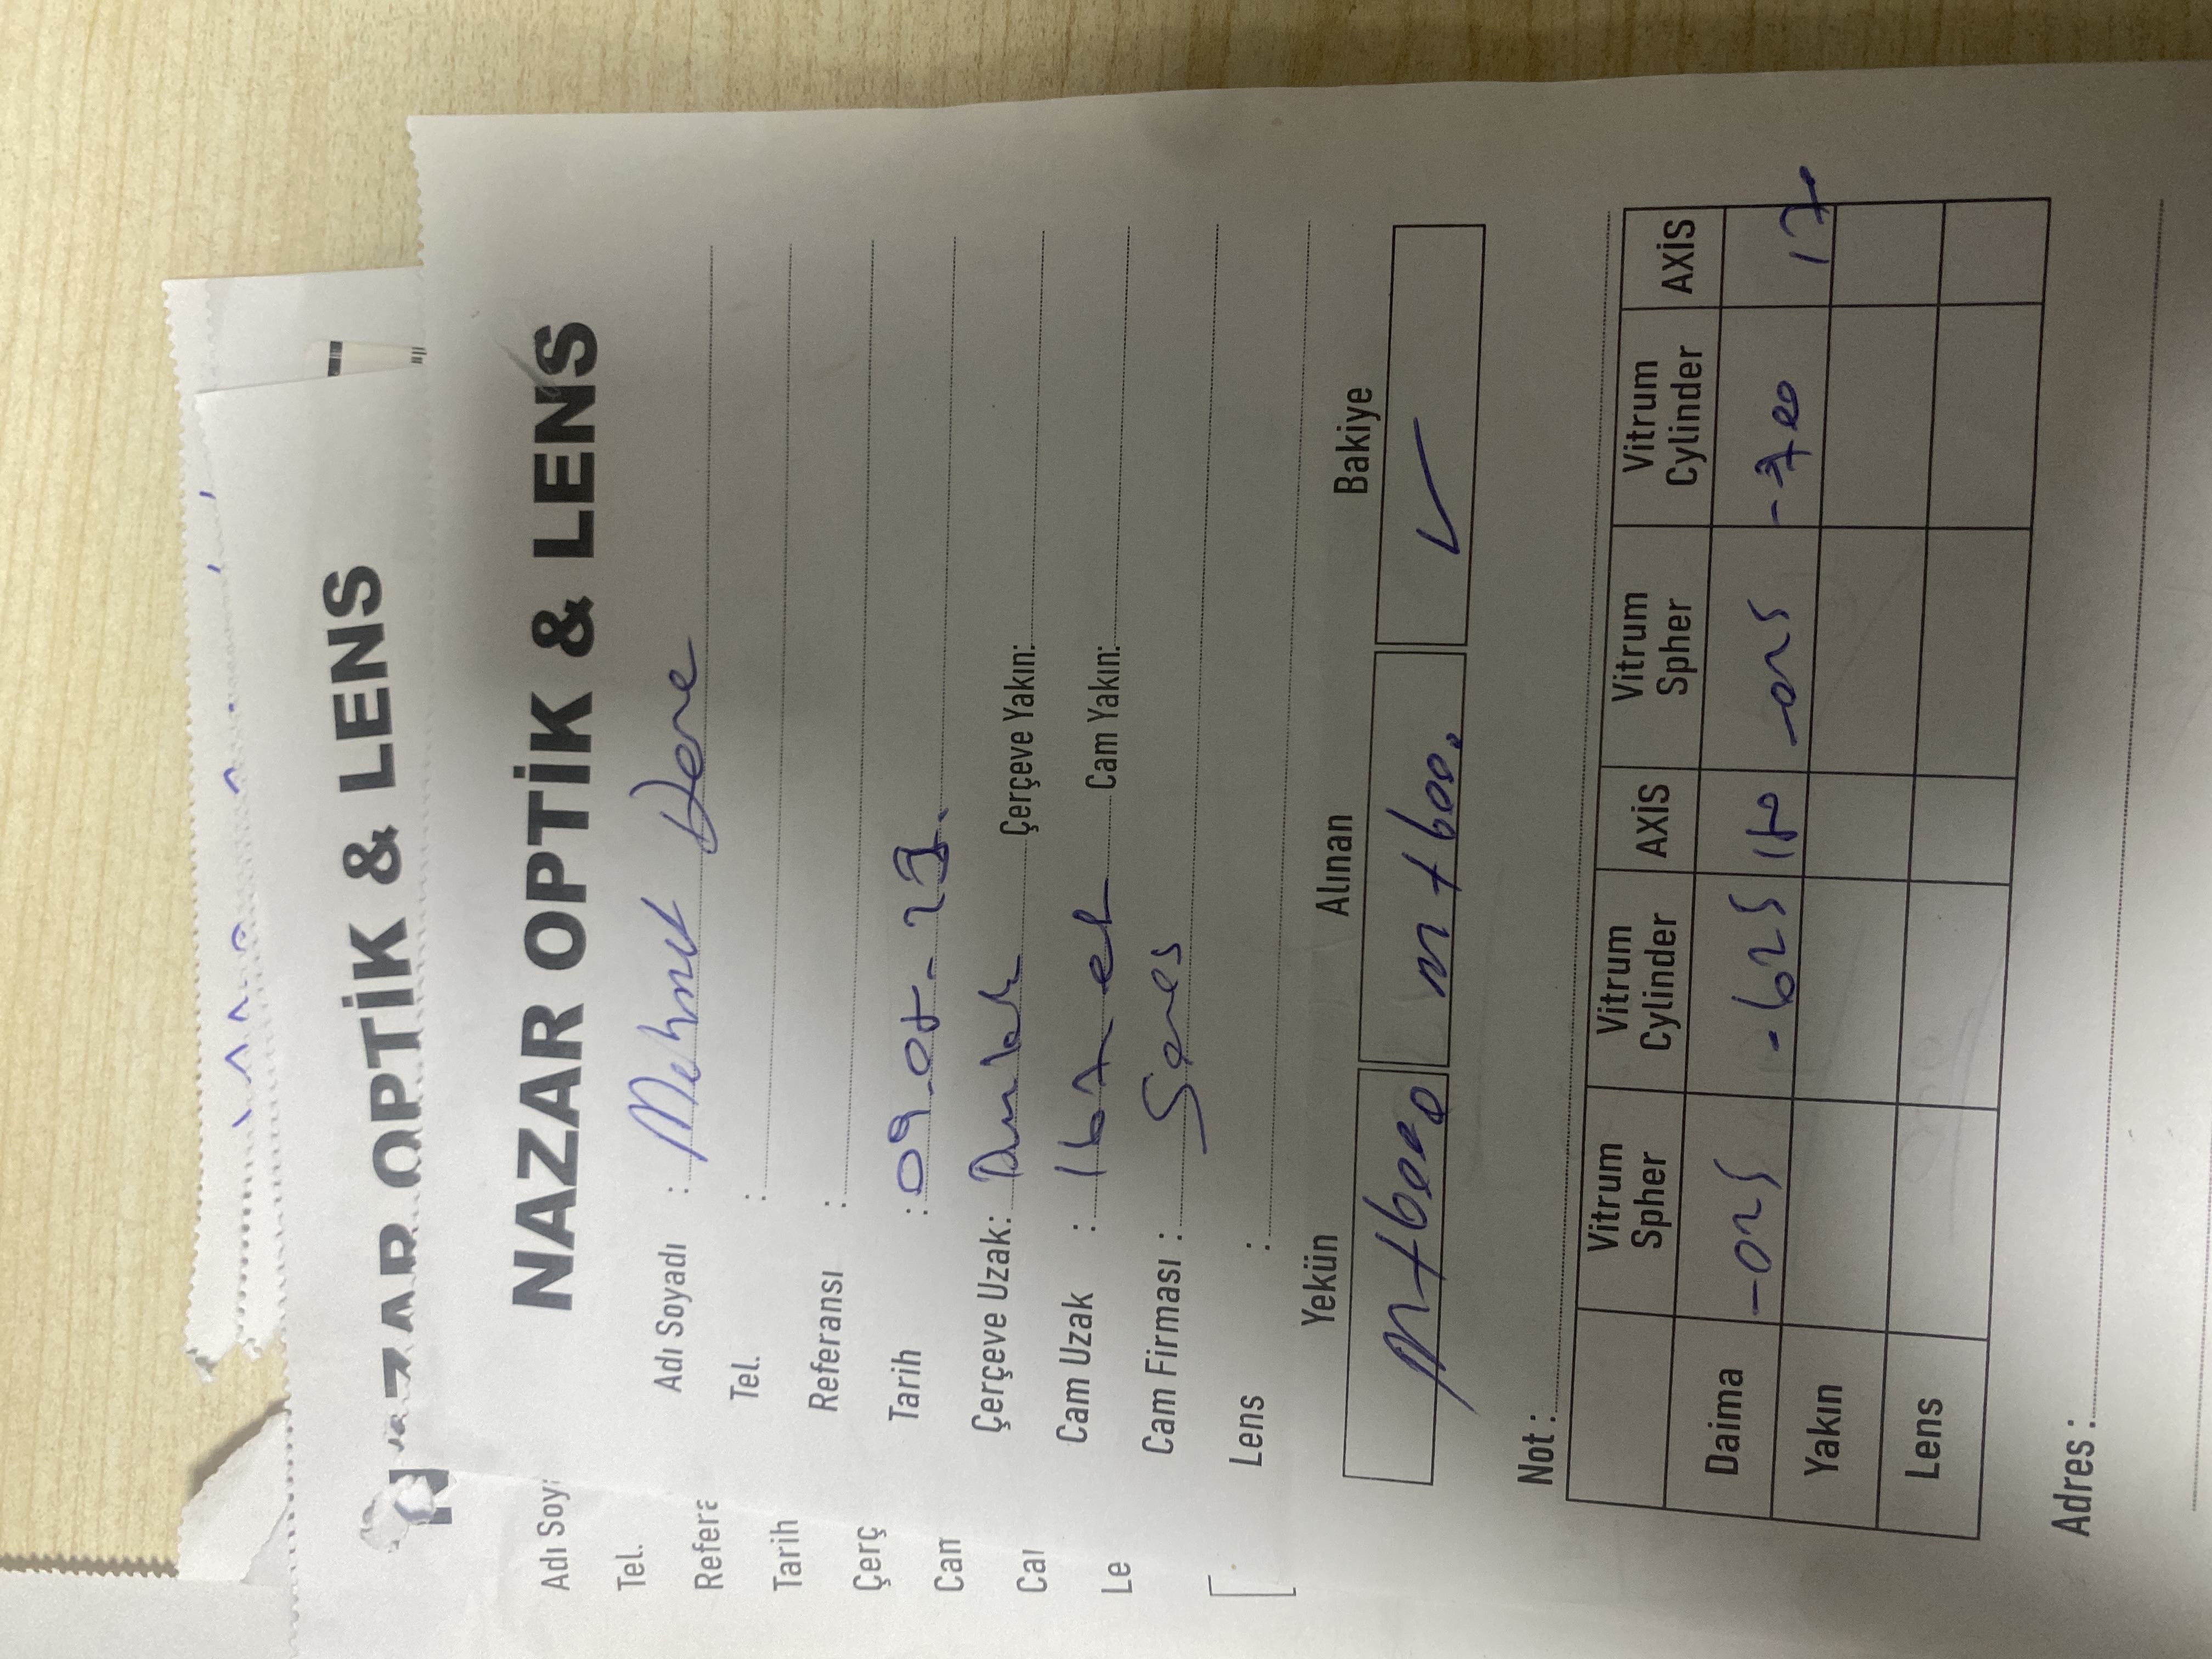 NAZAR OPTİK & LENS
Adı Soy
Tel.
Refera
Tarih
Çerç
Cam
Le
NAZAR OPTİK & LENS
Adı Soyadı : Mehmet Dere
Tel. :
Referansı :
Tarih : 09-08-23.
Çerçeve Uzak: Çerçeve Yakın:
Cam Uzak : 167 Cam Yakın:
Cam Firması : Seres
Lens :
Yekün Alınan Bakiye
m+600. ✓
Not :
Vitrum Spher Vitrum Cylinder AXİS Vitrum Spher Vitrum Cylinder AXİS
Daima -025 -625 180 -025 -700 170
Yakın
Lens
Adres :